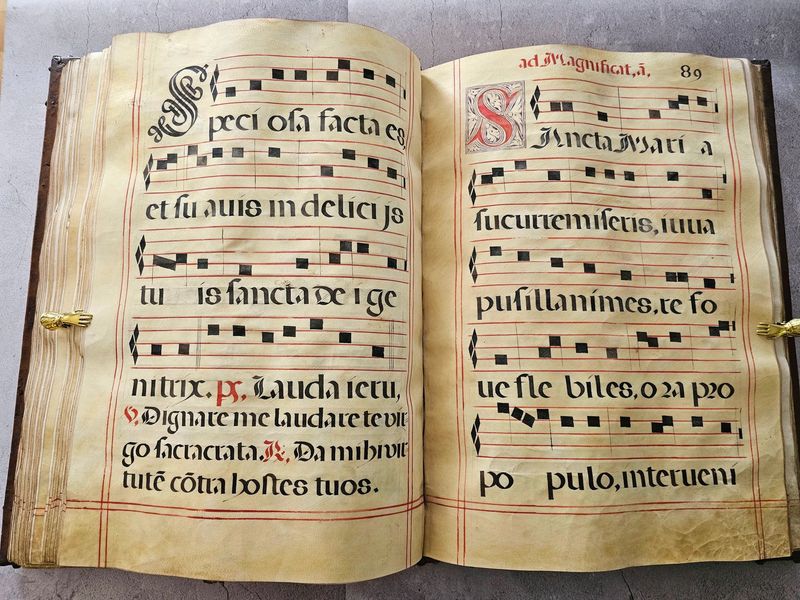 Speci osa facta es
et su auis in delici js
tu is sancta De i ge
nitrix. ps, Lauda ieru,
V, Dignare me laudare te vir
go sacracrata. R, Da mihi vir
tutẽ cõtra hostes tuos.
ad Magnificat, ã, 89
SAncta Mari a
sucurre miseris, iuua
pusillanimes, re fo
ue fle biles, ora pro
po pulo, interueni